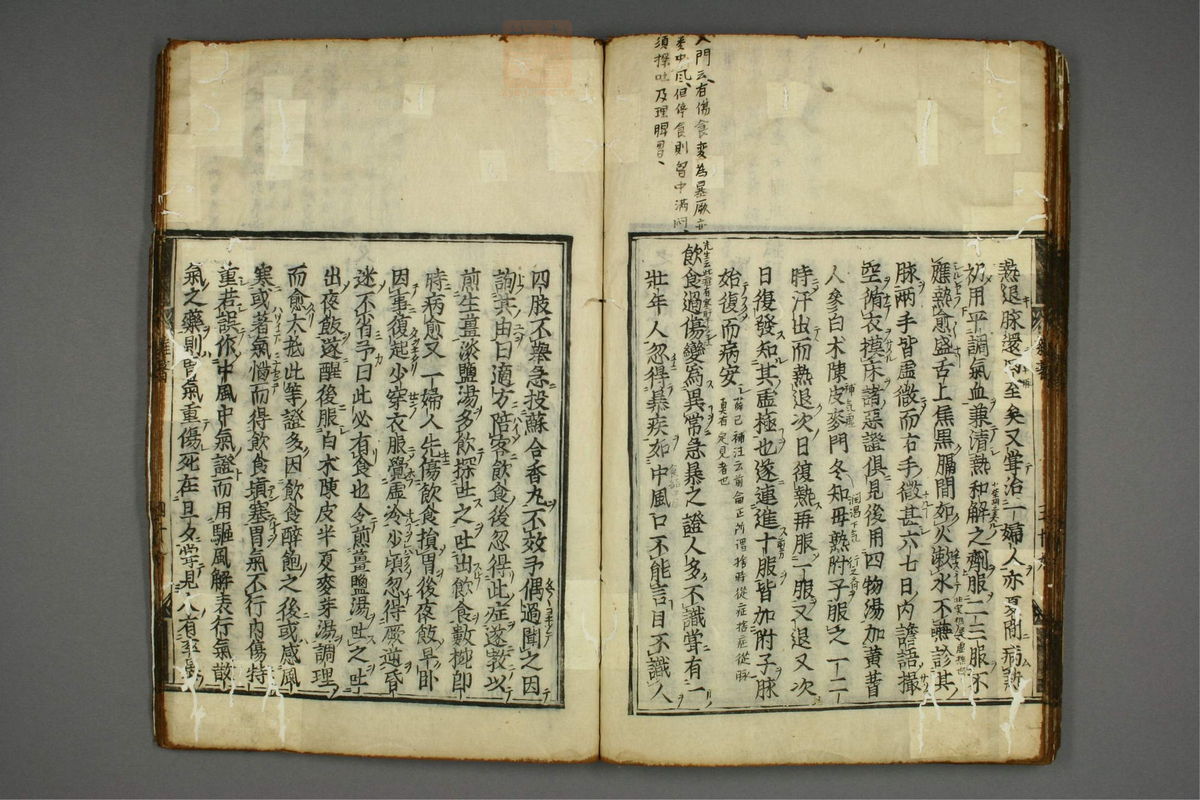 入門云有傷食變為暴厥亦
類中風但停食則胷中滿悶
須探吐及理脾胃
熱退脉還而至矣又嘗治一婦人亦夏間病熱
初用平調氣血兼清熱和解之劑服二三服不
應熱愈盛舌上焦黑膈間如火漱水不嚥診其
脉兩手皆虛微而右手微甚六七日內譫語撮
空循衣摸床諸惡證俱見後用四物湯加黃耆
人參白朮陳皮麥門冬知母熟附子服之一二
時汗出而熱退次日復熱再服一服又退又次
日復發知其虛極也遂連進十服皆加附子脉
始復而病安
薛己補注云前侖正所謂捨時從症捨症從脉
真有定見者也
飲食過傷變為異常急暴之證人多不識嘗有一
壯年人忽得暴疾如中風口不能言目不識人
四肢不舉急投蘇合香丸不效予偶過聞之因
詢其由曰適方陪客飲食後忽得此症遂教以
煎生薑淡鹽湯多飲探吐之吐出飲食數椀即
時病愈又一婦人先傷飲食損胃後夜飯早卧
因事復起少穿衣服覺虛冷少頃忽得厥逆昏
迷不省予曰此必有食也令煎薑鹽湯吐之吐
出夜飯遂醒後服白朮陳皮半夏麥芽湯調理
而愈大抵此等證多因飲食醉飽之後或感風
寒或著氣惱而得飲食填塞胃氣不行內傷特
重若誤作中風中氣證而用驅風解表行氣散
氣之藥則胃氣重傷死在旦夕嘗見人有